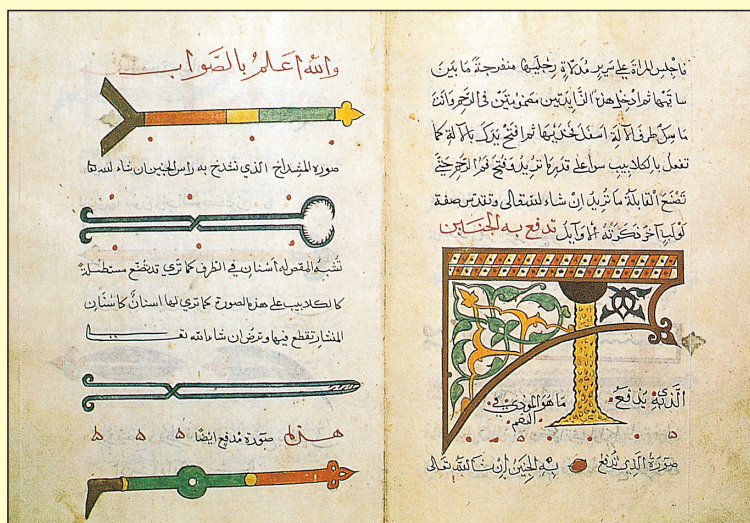 فاجلس المراة على سرير مدلاة رجليها منفرجة ما بين
ساقيها ثم ادخل هذه الزايدتين مضمومتين في الرحم وانت
ماسك طرف الالة اسفل فخديها ثم افتح يدك بالالة كما
تفعل بالكلاليب سوا على قدر ما تريد وفتح فم الرحم حتى
تصنع القابلة ما تريد ان شاء الله تعالى
لولب آخر ذكرته الاوايل تدفع به الجنين
الذي يدفع
صورة الذي تدفع به الجنين ان شا الله تعالى
والله اعلم بالصواب
صورة المشداخ الذي تشدخ به راس الجنين ان شاء الله
تشبه المقص له اسنان في الطرف كما ترى قد تصنع مستطيلة
كالكلاليب على هذه الصورة كما ترى لها اسنان كاسنان
المنشار تقطع فيها وترض ان شاء الله تعالى
هذه صورة مدفع ايضا ه ه ه